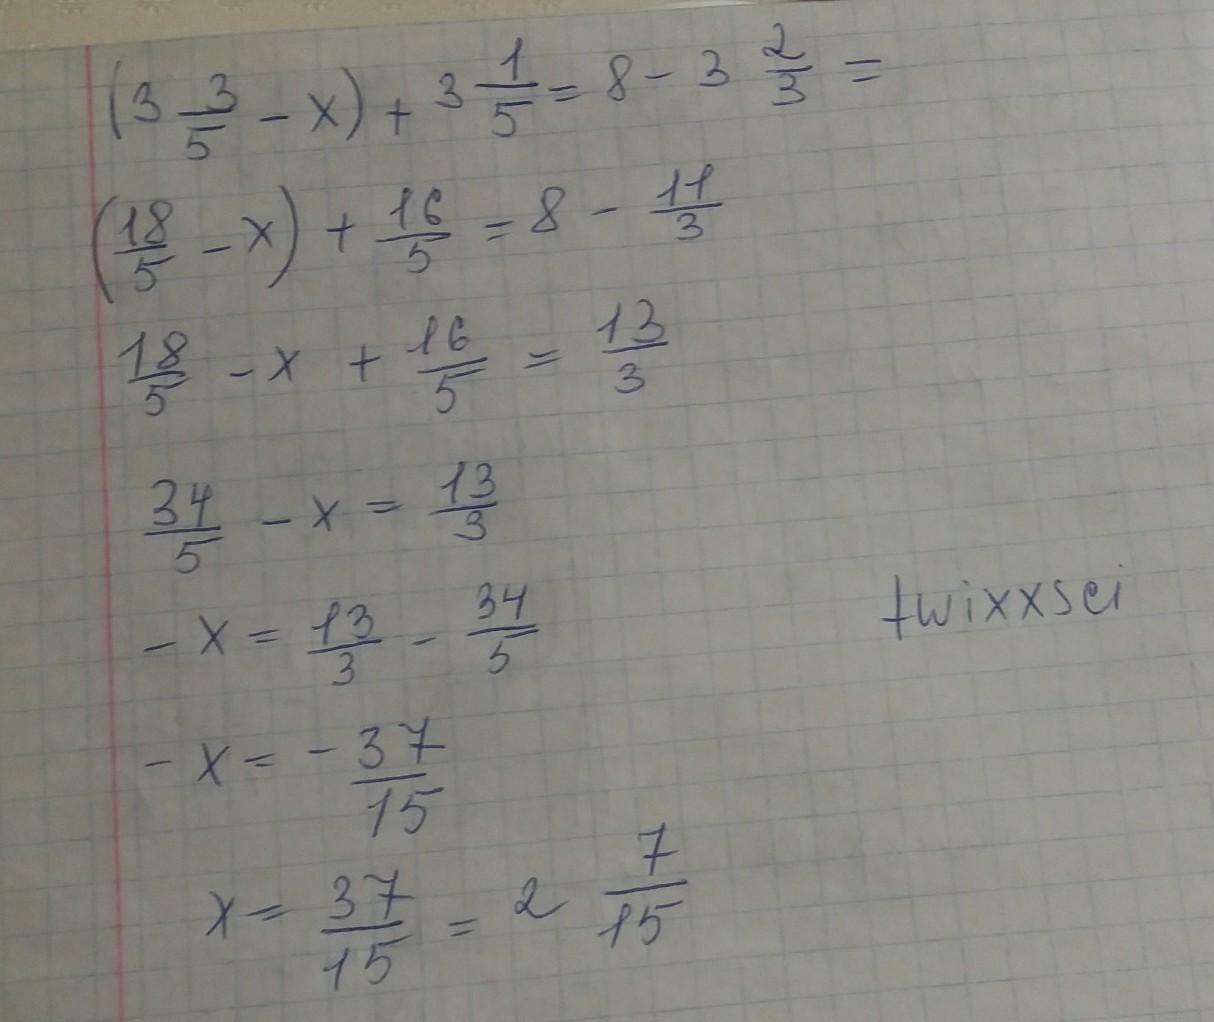 (3 3/5 - x) + 3 1/5 = 8 - 3 2/3 =
(18/5 - x) + 16/5 = 8 - 11/3
18/5 - x + 16/5 = 13/3
34/5 - x = 13/3
- x = 13/3 - 34/5
twixxsei
- x = - 37/15
x = 37/15 = 2 7/15